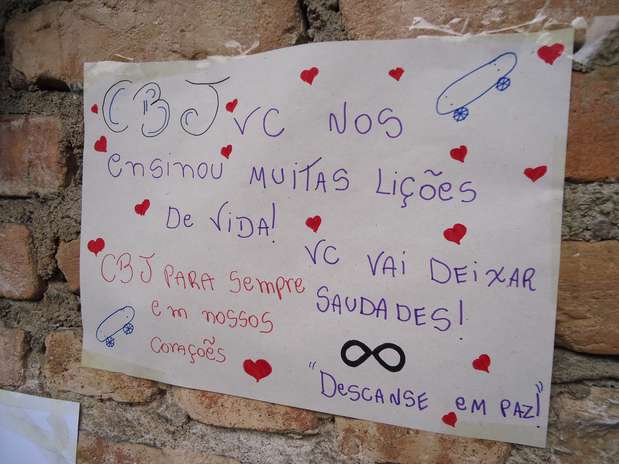 CBJ VC NOS
ensinou MUITAS Lições
De VIDA!
VC VAI DEIXAR
SAUDADES!
CBJ PARA Sempre
em nossos
corações
"Descanse em PAZ!"